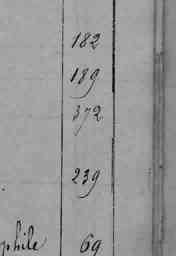 182
189
372
239
phile 69